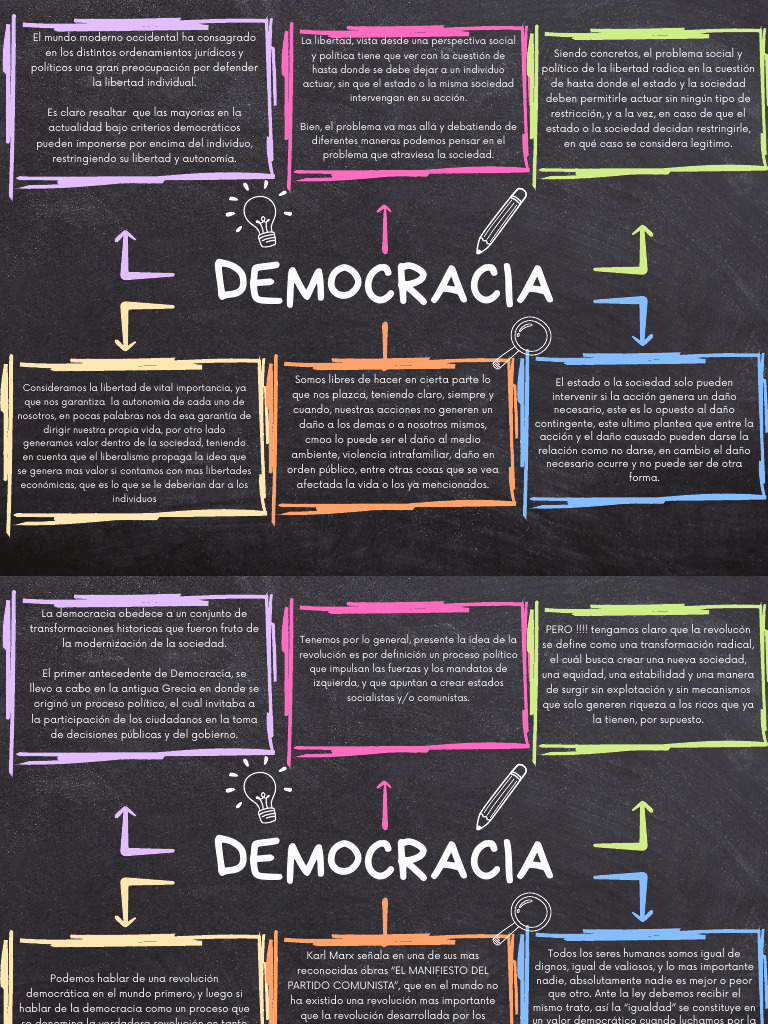 El mundo moderno occidental ha consagrado
en los distintos ordenamientos jurídicos y
políticos una gran preocupación por defender
la libertad individual.
Es claro resaltar que las mayorias en la
actualidad bajo criterios democráticos
pueden imponerse por encima del individuo,
restringiendo su libertad y autonomía.
La libertad, vista desde una perspectiva social
y política tiene que ver con la cuestión de
hasta donde se debe dejar a un individuo
actuar, sin que el estado o la misma sociedad
intervengan en su acción.
Bien, el problema va mas allá y debatiendo de
diferentes maneras podemos pensar en el
problema que atraviesa la sociedad.
Siendo concretos, el problema social y
político de la libertad radica en la cuestión
de hasta donde el estado y la sociedad
deben permitirle actuar sin ningún tipo de
restricción, y a la vez, en caso de que el
estado o la sociedad decidan restringirle,
en qué caso se considera legitimo.
DEMOCRACIA
Consideramos la libertad de vital importancia, ya
que nos garantiza la autonomia de cada uno de
nosotros, en pocas palabras nos da esa garantía de
dirigir nuestra propia vida, por otro lado
generamos valor dentro de la sociedad, teniendo
en cuenta que el liberalismo propaga la idea que
se genera mas valor si contamos con mas libertades
económicas, que es lo que se le deberian dar a los
individuos
Somos libres de hacer en cierta parte lo
que nos plazca, teniendo claro, siempre y
cuando, nuestras acciones no generen un
daño a los demas o a nosotros mismos,
cmoo lo puede ser el daño al medio
ambiente, violencia intrafamiliar, daño en
orden público, entre otras cosas que se vea
afectada la vida o los ya mencionados.
El estado o la sociedad solo pueden
intervenir si la acción genera un daño
necesario, este es lo opuesto al daño
contingente, este ultimo plantea que entre la
acción y el daño causado pueden darse la
relación como no darse, en cambio el daño
necesario ocurre y no puede ser de otra
forma.
La democracia obedece a un conjunto de
transformaciones historicas que fueron fruto de
la modernización de la sociedad.
El primer antecedente de Democracia, se
llevo a cabo en la antigua Grecia en donde se
originó un proceso político, el cuál invitaba a
la participación de los ciudadanos en la toma
de decisiones públicas y del gobierno.
Tenemos por lo general, presente la idea de la
revolución es por definición un proceso político
que impulsan las fuerzas y los mandatos de
izquierda, y que apuntan a crear estados
socialistas y/o comunistas.
PERO !!!! tengamos claro que la revolucón
se define como una transformación radical,
el cuál busca crear una nueva sociedad,
una equidad, una estabilidad y una manera
de surgir sin explotación y sin mecanismos
que solo generen riqueza a los ricos que ya
la tienen, por supuesto.
DEMOCRACIA
Podemos hablar de una revolución
democrática en el mundo primero, y luego si
hablar de la democracia como un proceso que
se denomina la verdadera revolución en tanto
Karl Marx señala en una de sus mas
reconocidas obras "EL MANIFIESTO DEL
PARTIDO COMUNISTA", que en el mundo no
ha existido una revolucion mas importante
que la revolución desarrollada por los
Todos los seres humanos somos igual de
dignos, igual de valiosos, y lo mas importante
nadie, absolutamente nadie es mejor o peor
que otro. Ante la ley debemos recibir el
mismo trato, así la "igualdad" se constituye en
un valor democrático cuando luchamos por la